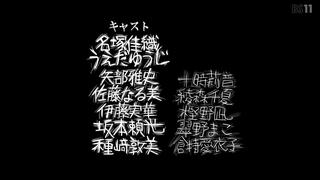 BS11
キャスト
名塚佳織
うえだゆうじ
矢部雅史
佐藤なる美
伊藤実華
坂本頼光
種﨑敦美
十時莉音
綾森千夏
樫野凪
翠野まこ
倉持愛衣子